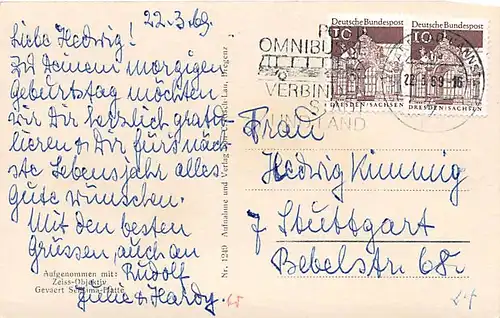 22.3.69.
Liebe Hedwig!
Zu Deinem morgigen
Geburtstag möchten
wir Dir herzlich gratu-
lieren & Dir fürs näch-
ste Lebensjahr alles
gute wünschen.
Mit den besten
Grüssen, auch an
Rudolf
Julie & Hardy.
Aufgenommen mit:
Zeiss-Objektiv
Gevaert Platte
Nr. 1249 Aufnahme und Verlag Bregenz
Deutsche Bundespost
10
DRESDEN/SACHSEN
Deutsche Bundespost
10
DRESDEN/SACHSEN
OMNIBUS
VERBIN
LAND
69
Frau
Hedwig
7 Stuttgart
Bebelstr. 68